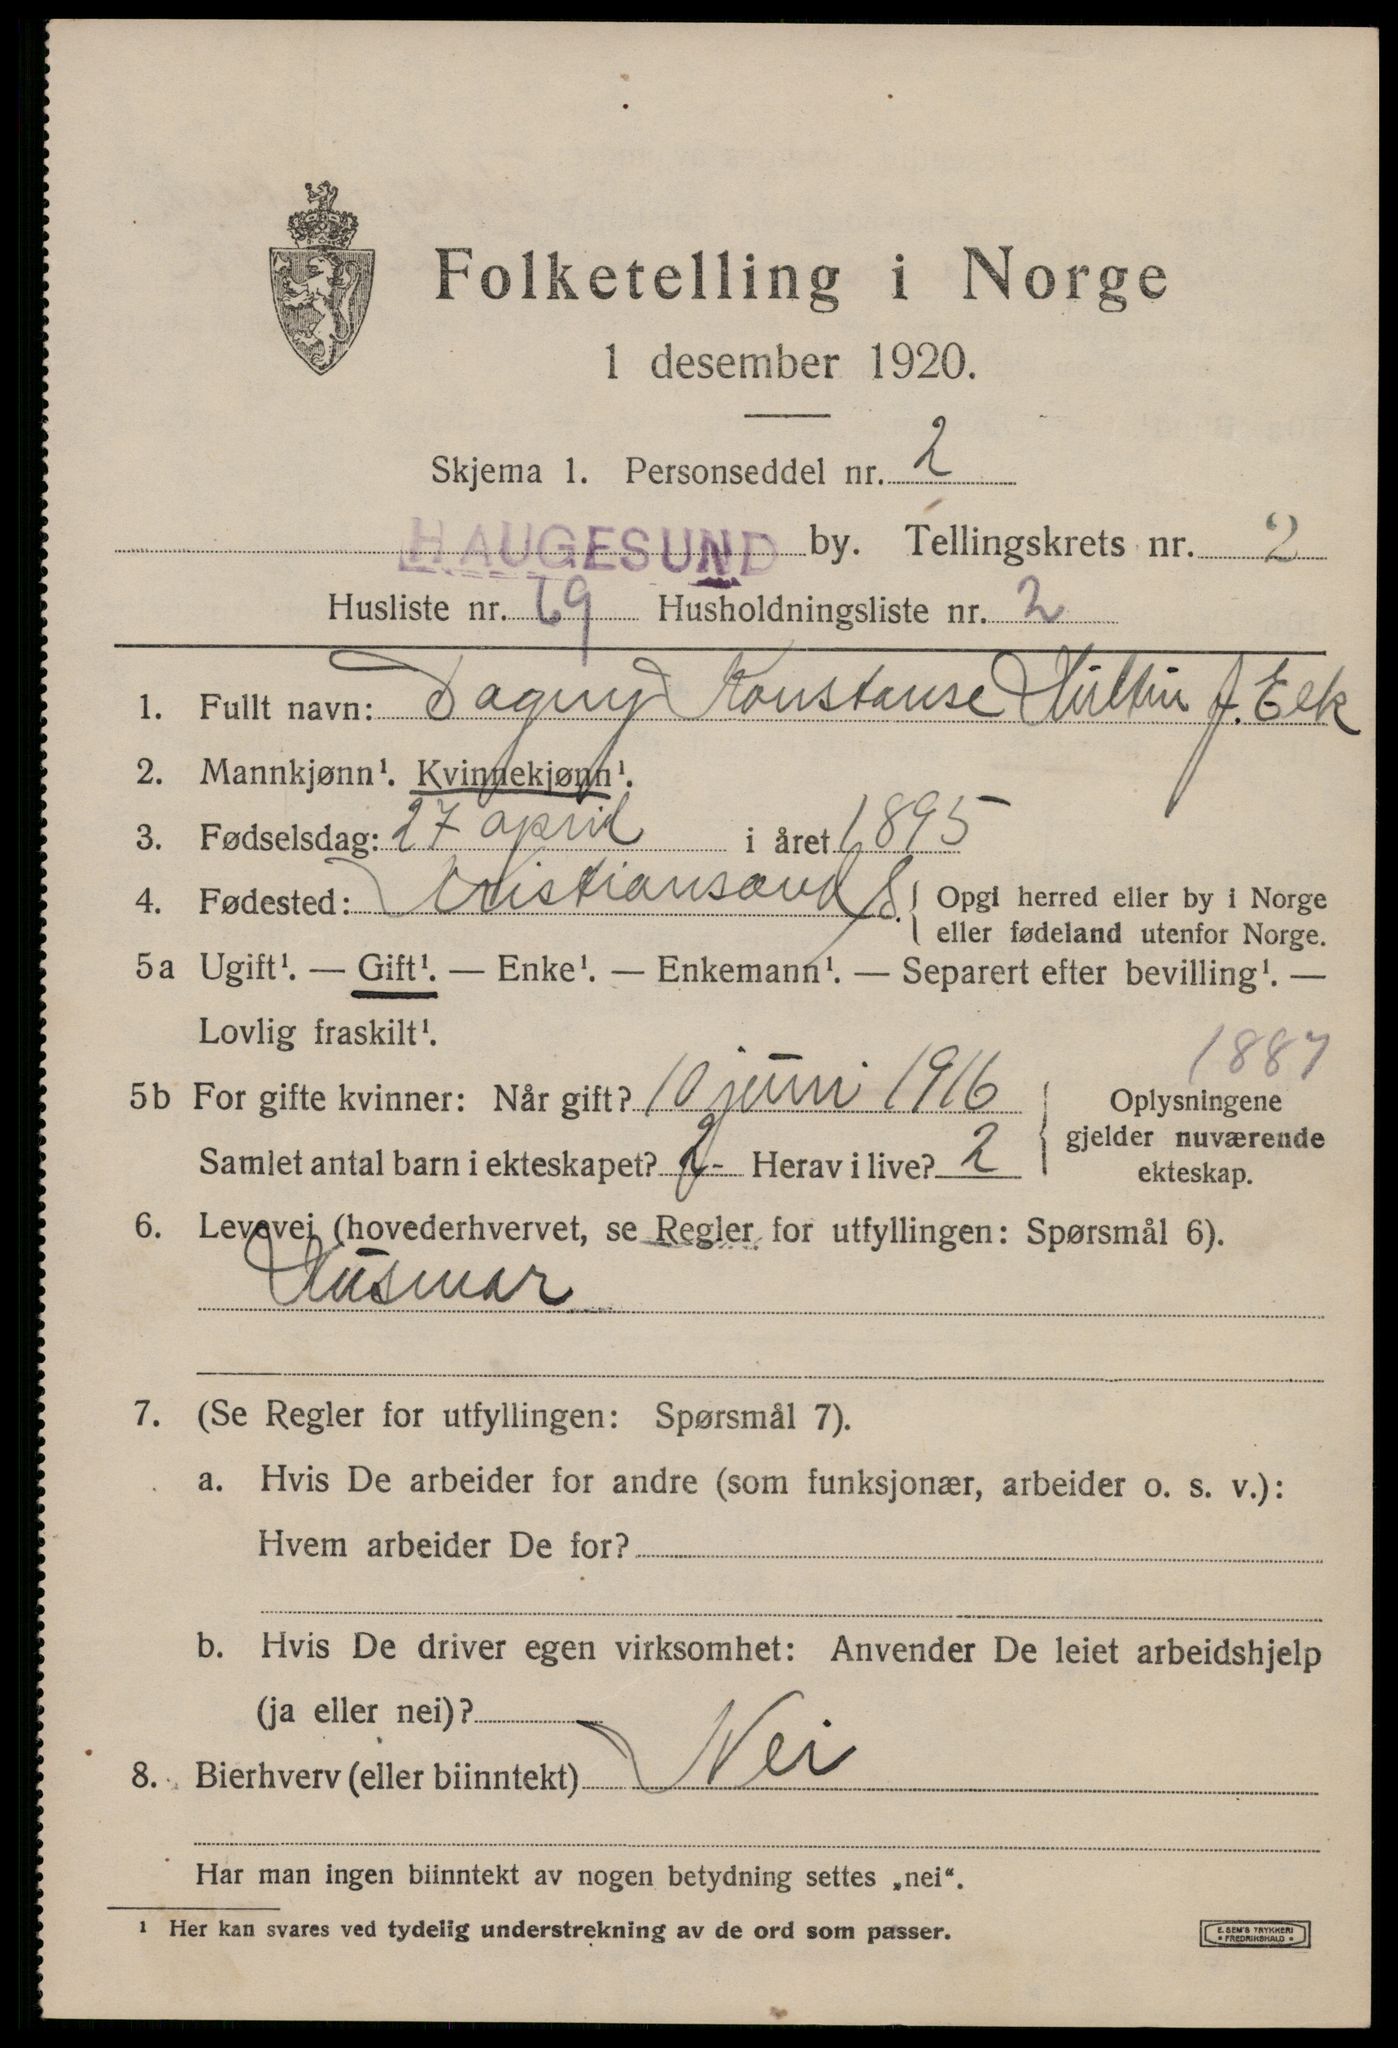 Folketelling i Norge
1 desember 1920.
Skjema 1. Personseddel nr. 2
HAUGESUND by. Tellingskrets nr. 2
Husliste nr. 69 Husholdningsliste nr. 2
1. Fullt navn: Dagny Konstanse f. Eek
2. Mannkjønn¹. Kvinnekjønn¹.
3. Fødselsdag: 27 april i året 1895
4. Fødested: Kristiansand S. { Opgi herred eller by i Norge
eller fødeland utenfor Norge.
5a Ugift¹. — Gift¹. — Enke¹. — Enkemann¹. — Separert efter bevilling¹. —
Lovlig fraskilt¹.
1887
5b For gifte kvinner: Når gift? 10 juni 1916 { Oplysningene
gjelder nuværende
Samlet antal barn i ekteskapet? 2 - Herav i live? 2 ekteskap.
6. Levevei (hovederhvervet, se Regler for utfyllingen: Spørsmål 6).
Husmor
7. (Se Regler for utfyllingen: Spørsmål 7).
a. Hvis De arbeider for andre (som funksjonær, arbeider o. s. v.):
Hvem arbeider De for?
b. Hvis De driver egen virksomhet: Anvender De leiet arbeidshjelp
(ja eller nei)?
8. Bierhverv (eller biinntekt) Nei
Har man ingen biinntekt av nogen betydning settes „nei“.
¹ Her kan svares ved tydelig understrekning av de ord som passer.
E. SEM'S TRYKKERI
• FREDRIKSHALD •